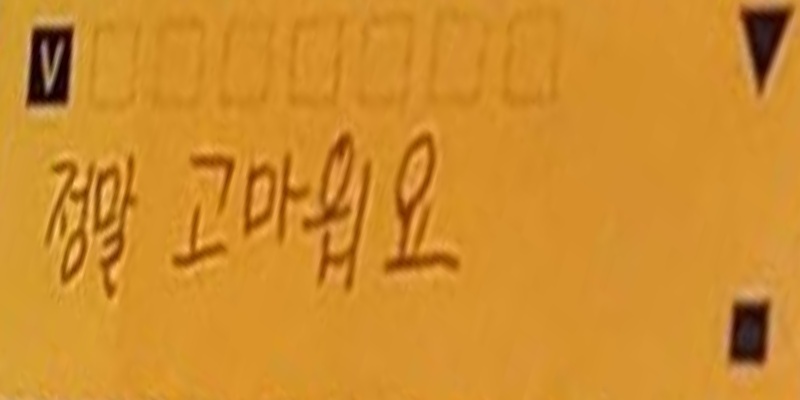 V
정말 고마윕요